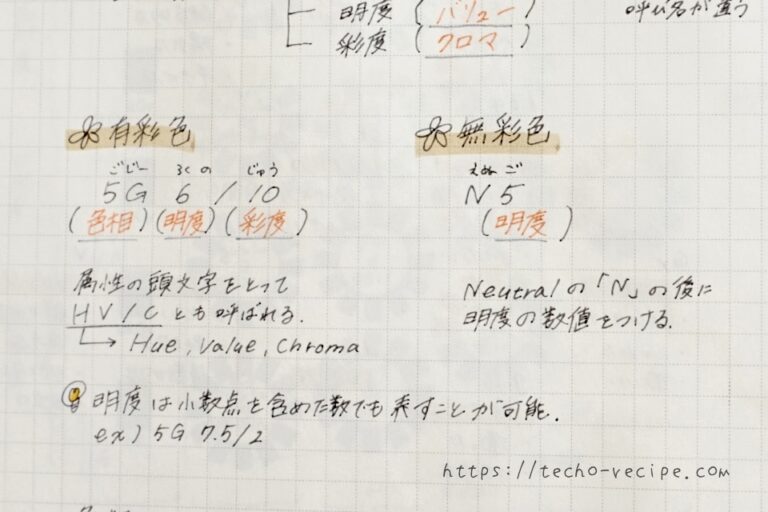 明度 (バリュー)
呼び名が違う
彩度 (クロマ)
有彩色
ごじー ろくの じゅう
5G 6 / 10
(色相) (明度) (彩度)
属性の頭文字をとって
HV/C とも呼ばれる.
Hue, Value, Chroma
無彩色
えぬ ご
N 5
(明度)
Neutralの「N」の後に
明度の数値をつける.
明度は小数点を含めた数でも表すことが可能.
ex) 5G 7.5/2
https://techo-recipe.com